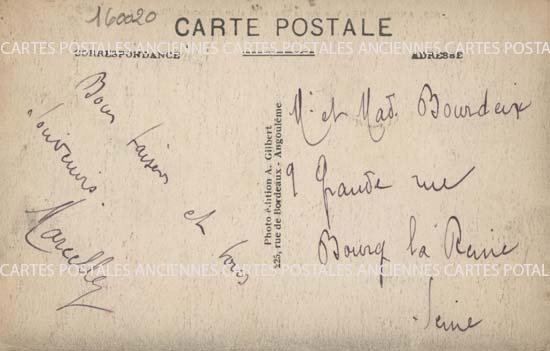 160020
CARTE POSTALE
CORRESPONDANCE
ADRESSE
CARTES POSTALES ANCIENNES CARTES POSTALES ANCIENNES CARTES POSTALES
Bons baisers et bons
souvenirs.
Marcelle
Photo édition A. Gilbert
425, rue de Bordeaux - Angoulême
Mr et Mad. Bourdeix
9 Grande rue
Bourg la Reine
Seine
CARTES POSTALES ANCIENNES CARTES POSTALES ANCIENNES CARTES POSTALES